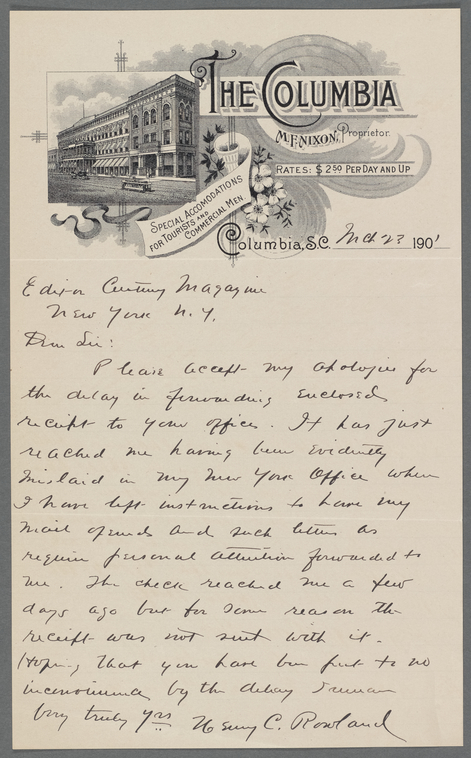 THE COLUMBIA
M. F. NIXON, Proprietor.
RATES: $2.50 PER DAY AND UP
SPECIAL ACCOMODATIONS
FOR TOURISTS AND
COMMERCIAL MEN.
Columbia, S.C. Mch 23 1901
Editor Century Magazine
New York N.Y.
Dear Sir:
Please accept my apologies for
the delay in forwarding enclosed
receipt to your office. It has just
reached me having been evidently
mislaid in my New York Office where
I have left instructions to have my
mail opened and such letters as
require personal attention forwarded to
me. The check reached me a few
days ago but for some reason the
receipt was not sent with it.
Hoping that you have been put to no
inconvenience by the delay I remain
Very truly yrs Henry C. Rowland